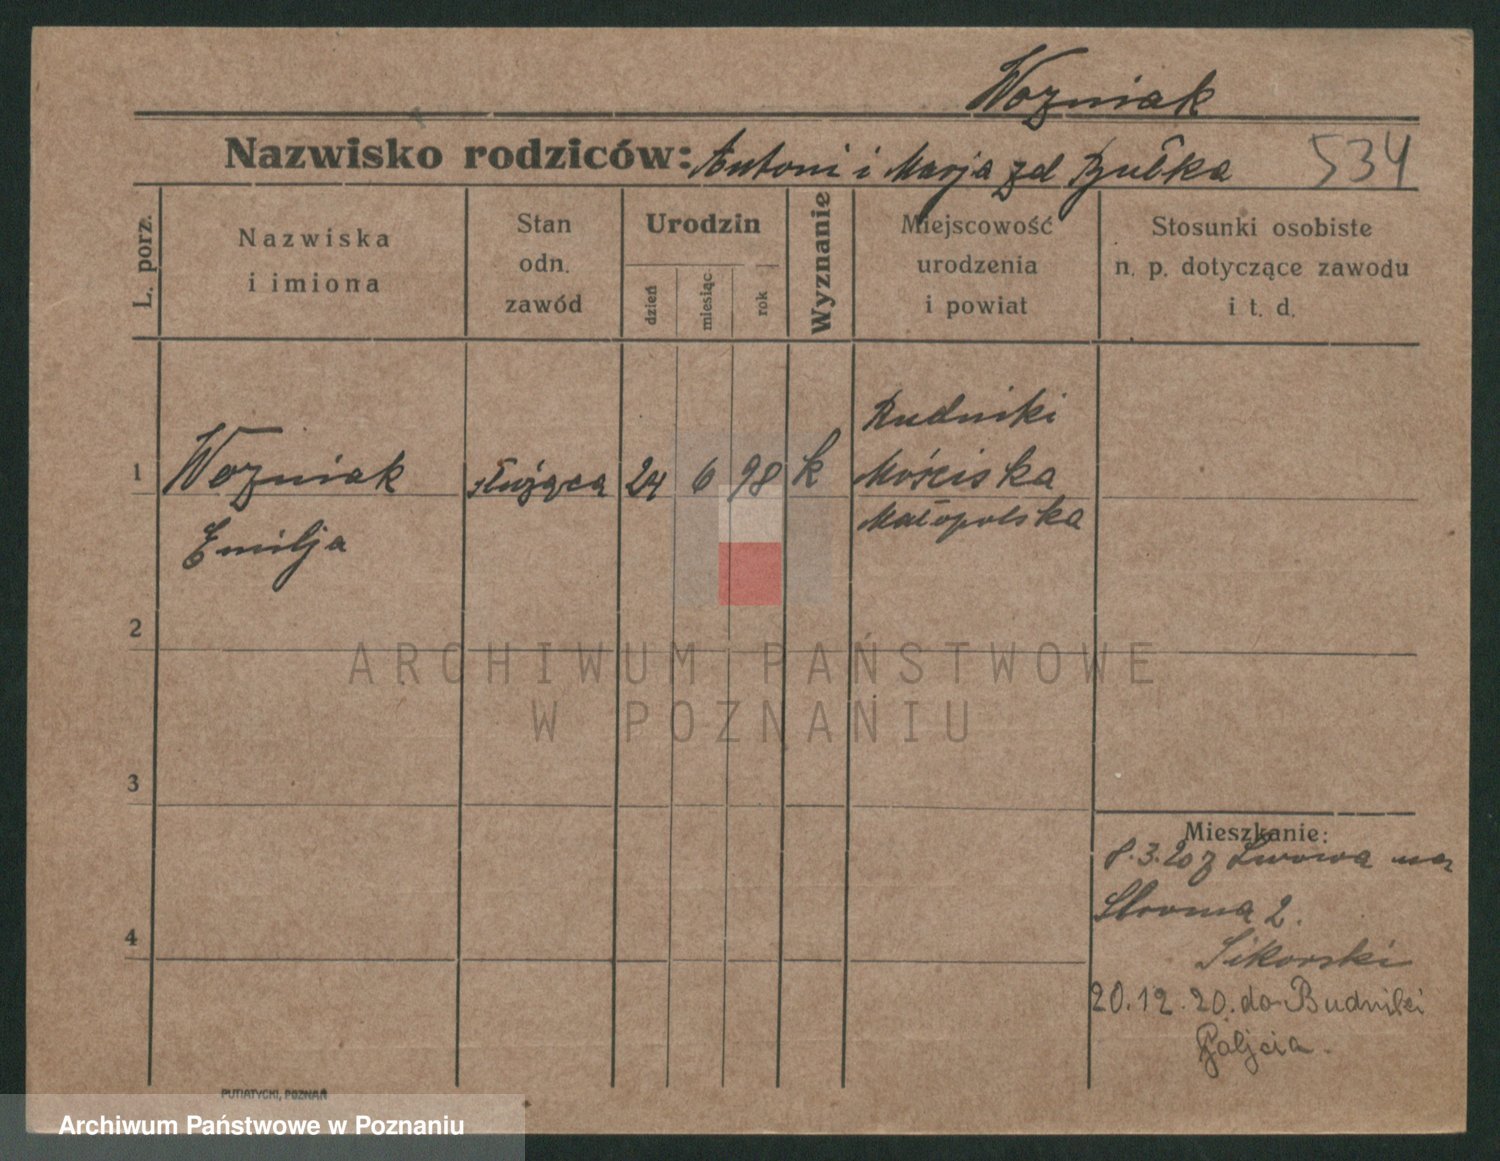 Wozniak
Nazwisko rodziców: Antoni i Marja zd Bułka 534
L. porz.
Nazwiska
i imiona
Stan
odn.
zawód
Urodzin
dzień
miesiąc
rok
Wyznanie
Miejscowość
urodzenia
i powiat
Stosunki osobiste
n. p. dotyczące zawodu
i t. d.
1 Wozniak służąca 24 6 98 k Rudniki
Mościska
Małopolska
Emilja
2
3
4
Mieszkanie:
8.3.20 z Lwowa na
2.
Sikorski
20.12.20. do Budniki
Galjcia.
PUTIATYCKI, POZNAŃ
ARCHIWUM PAŃSTWOWE
W POZNANIU
Archiwum Państwowe w Poznaniu